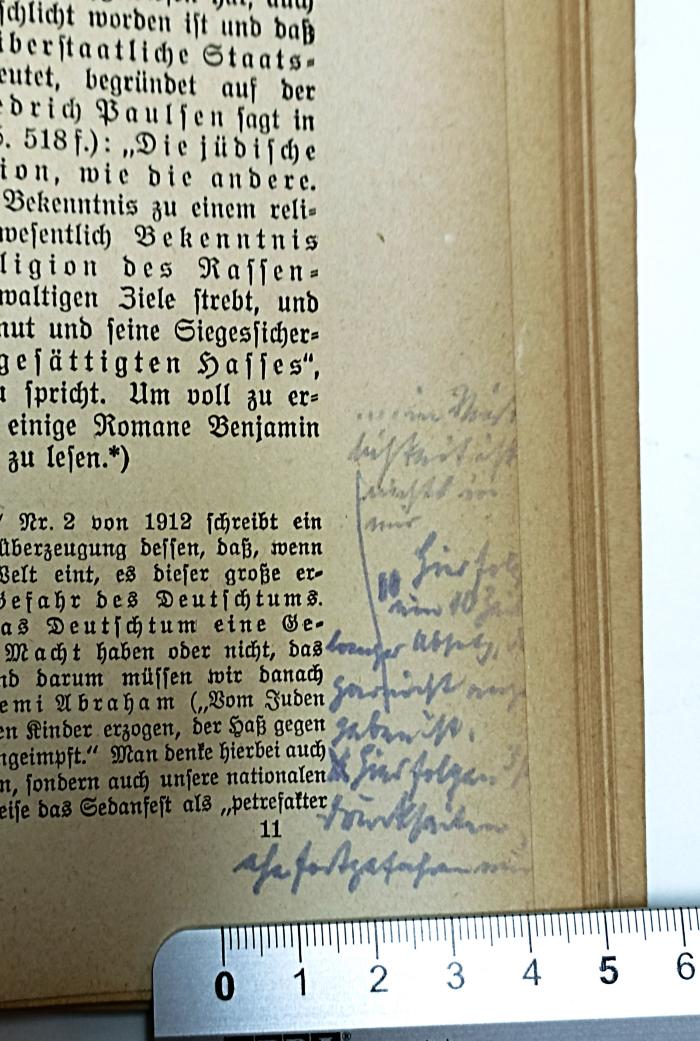 schlicht worden ist und daß
überstaatliche Staats-
eutet, begründet auf der
edrich Paulsen sagt in
S. 518 f.): „Die jüdische
ion, wie die andere.
Bekenntnis zu einem reli-
wesentlich Bekenntnis
ligion des Rassen-
waltigen Ziele strebt, und
mut und seine Siegessicher-
gesättigten Hasses“,
u spricht. Um voll zu er-
einige Romane Benjamin
zu lesen.*)
... in Wirk
lichkeit ist
nichts in
mir
Nr. 2 von 1912 schreibt ein
überzeugung dessen, daß, wenn
Welt eint, es dieser große er-
Gefahr des Deutschtums.
as Deutschtum eine Ge-
Macht haben oder nicht, das
nd darum müssen wir danach
emi Abraham („Vom Juden
en Kinder erzogen, der Haß gegen
ngeimpft.“ Man denke hierbei auch
n, sondern auch unsere nationalen
eise das Sedanfest als „petrefakter
11
Hier folg
ein 10
langer Absatz,
gar nicht ange
geben ist.
Hier folgen
Druckseiten
ehe fortgefahren
0 1 2 3 4 5 6